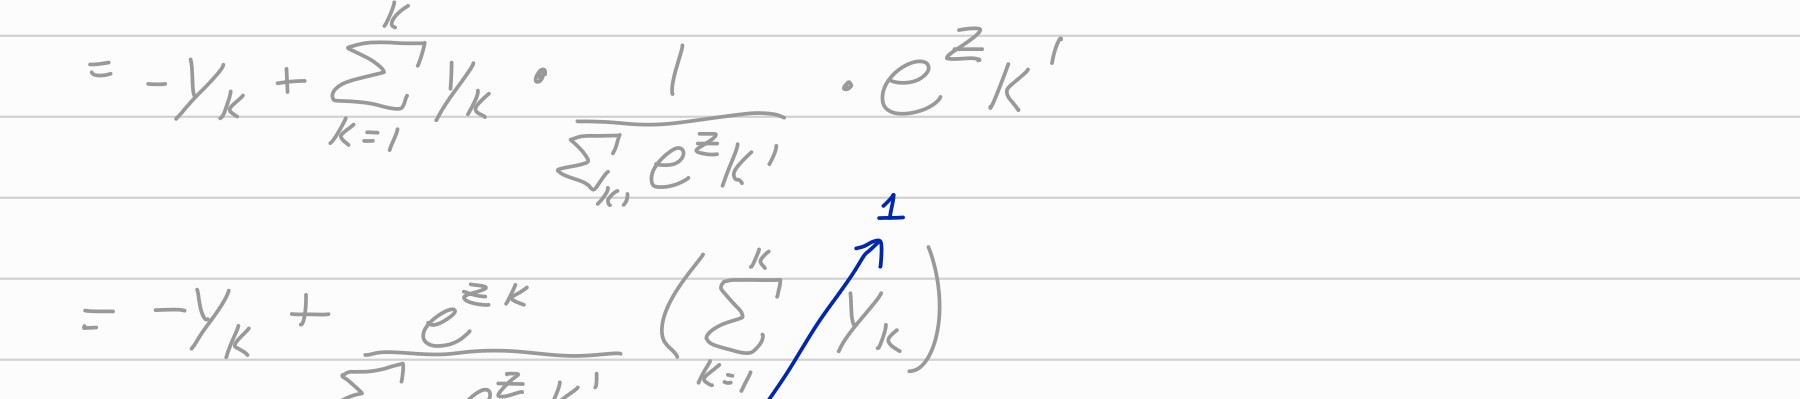 = -y_k + Σ_{k=1}^{K} y_k · 1 / (Σ_{k'} e^{z_{k'}}) · e^{z_{k'}}
1
= -y_k + e^{z_k} / (Σ e^{z_{k'}}) (Σ_{k=1}^{K} y_k)